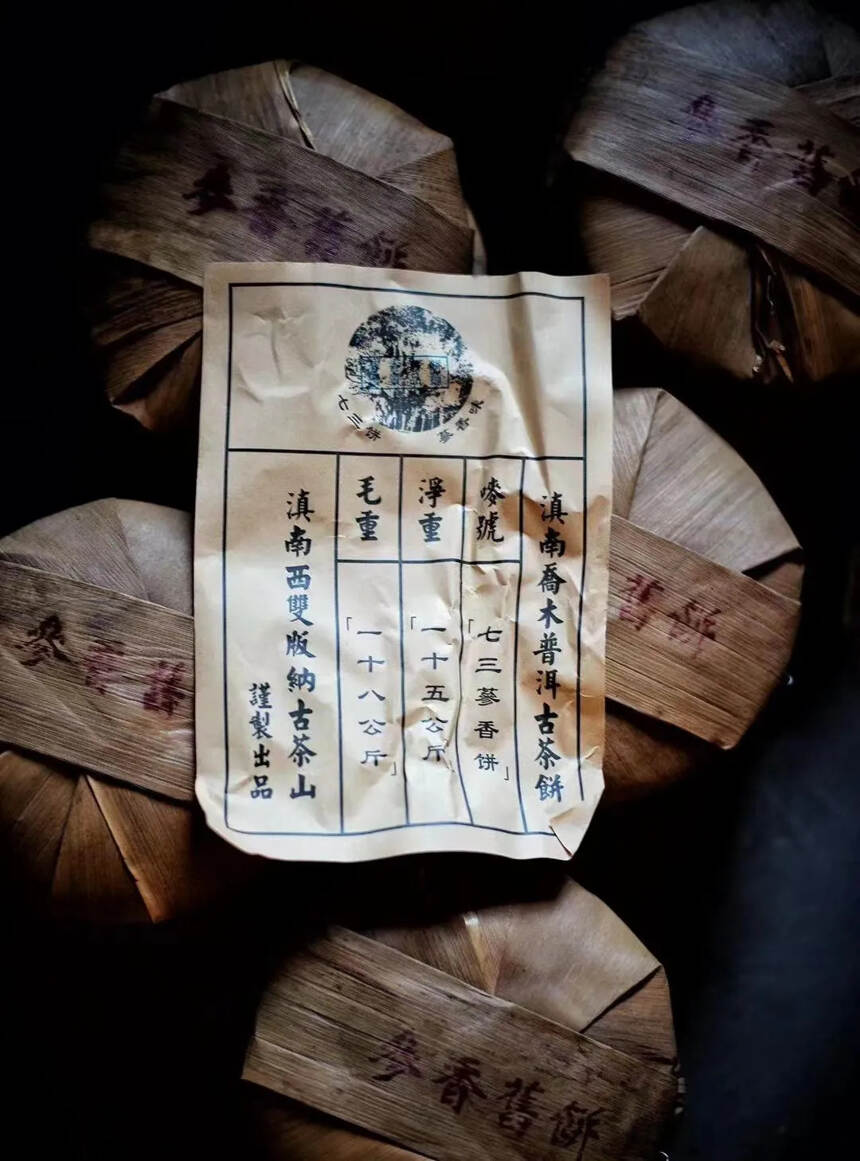 參香舊餅
參香舊
七三饼
蔘香味
滇南喬木普洱古茶餅
嘜號
「七三蔘香饼」
淨重
「一十五公斤」
毛重
「一十八公斤」
滇南西雙版納古茶山
謹製出品
參香舊
舊餅
參香舊餅